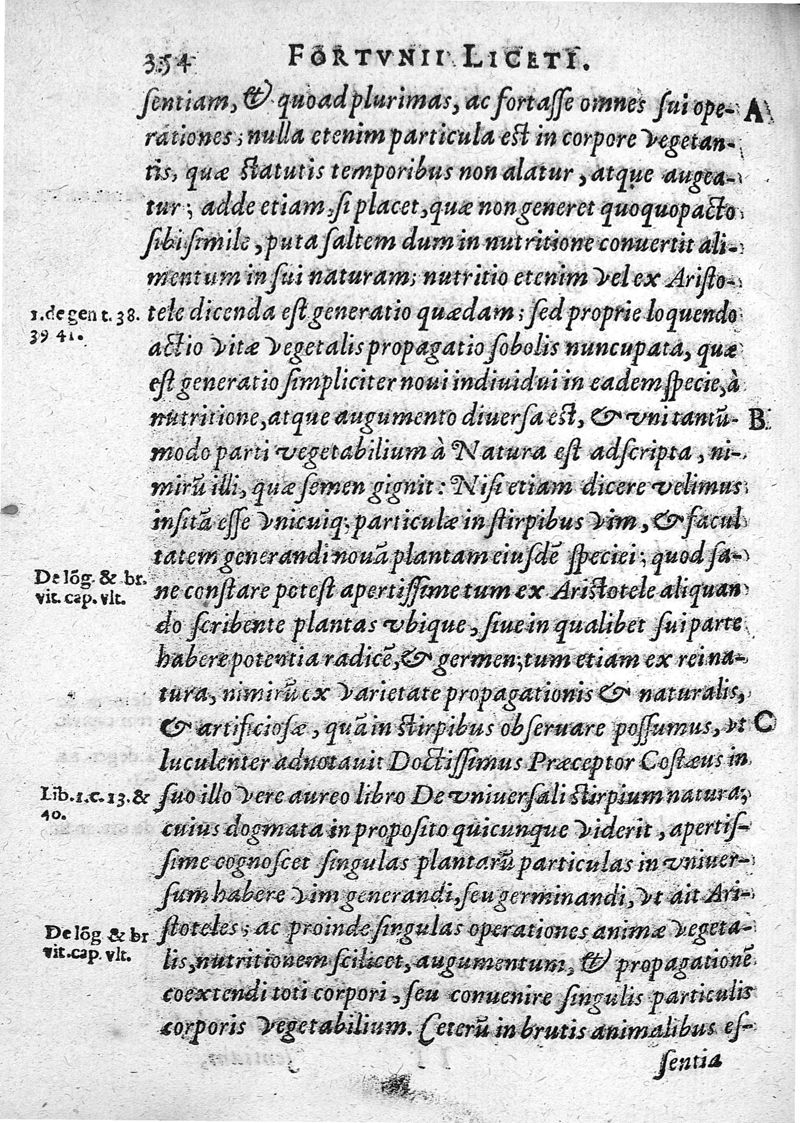 354 FORTVNII LICETI.
sentiam, & quoad plurimas, ac fortasse omnes sui ope- A
rationes; nulla etenim particula est in corpore vegetan-
tis, quæ statutis temporibus non alatur, atque augea-
tur; adde etiam, si placet, quæ non generet quoquopacto
sibi simile, puta saltem dum in nutritione conuertit ali-
mentum in sui naturam; nutritio etenim vel ex Aristo-
1. de gen t. 38. tele dicenda est generatio quædam; sed proprie loquendo
39 41.
actio vitæ vegetalis propagatio sobolis nuncupata, quæ
est generatio simpliciter noui indiuidui in eadem specie, à
nutritione, atque augumento diuersa est, & vni tantū- B
modo parti vegetabilium à Natura est adscripta, ni-
mirū illi, quæ semen gignit: Nisi etiam dicere velimus
insitā esse vnicuiq; particulæ in stirpibus vim, & facul
tatem generandi nouā plantam eiusdē speciei; quod sa-
De lōg. & br. ne constare potest apertissime tum ex Aristotele aliquan
vit. cap. vlt.
do scribente plantas vbique, siue in qualibet sui parte
habere potentia radicē, & germen; tum etiam ex rei na-
tura, nimirū ex varietate propagationis & naturalis,
& artificiosæ, quā in stirpibus obseruare possumus, vt C
luculenter adnotauit Doctissimus Præceptor Costæus in
Lib. 1. c. 13. & suo illo vere aureo libro De vniuersali stirpium natura;
40.
cuius dogmata in proposito quicunque viderit, apertis-
sime cognoscet singulas plantarū particulas in vniuer-
sum habere vim generandi, seu germinandi, vt ait Ari-
De lōg & br stoteles; ac proinde singulas operationes animæ vegeta-
vit. cap. vlt.
lis, nutritionem scilicet, augumentum, & propagationē
coextendi toti corpori, seu conuenire singulis particulis
corporis vegetabilium. Ceterū in brutis animalibus es-
sentia